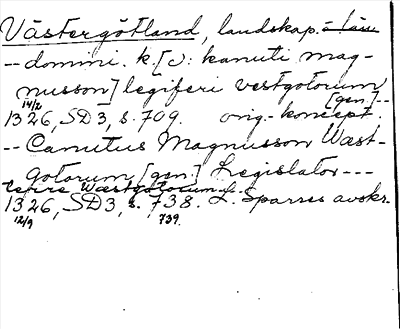 Västergötland, landskap.
-- domini. k.[ɔ: kanuti mag-
nusson] legiferi vestgotorum
[gen.]--
14/2
1326, SD3, s. 709. orig.-koncept.
-- Canutus Magnusson Wæst-
gotorum [gen.] Legislator ---
terre Wæstgotorum L.
1326, SD3, s. 738. L. Sparres avskr.
12/9 739.